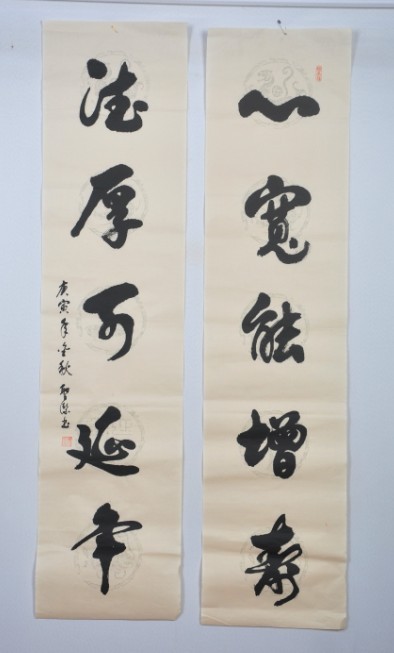 心寬能增壽
德厚可延年
庚寅年金秋